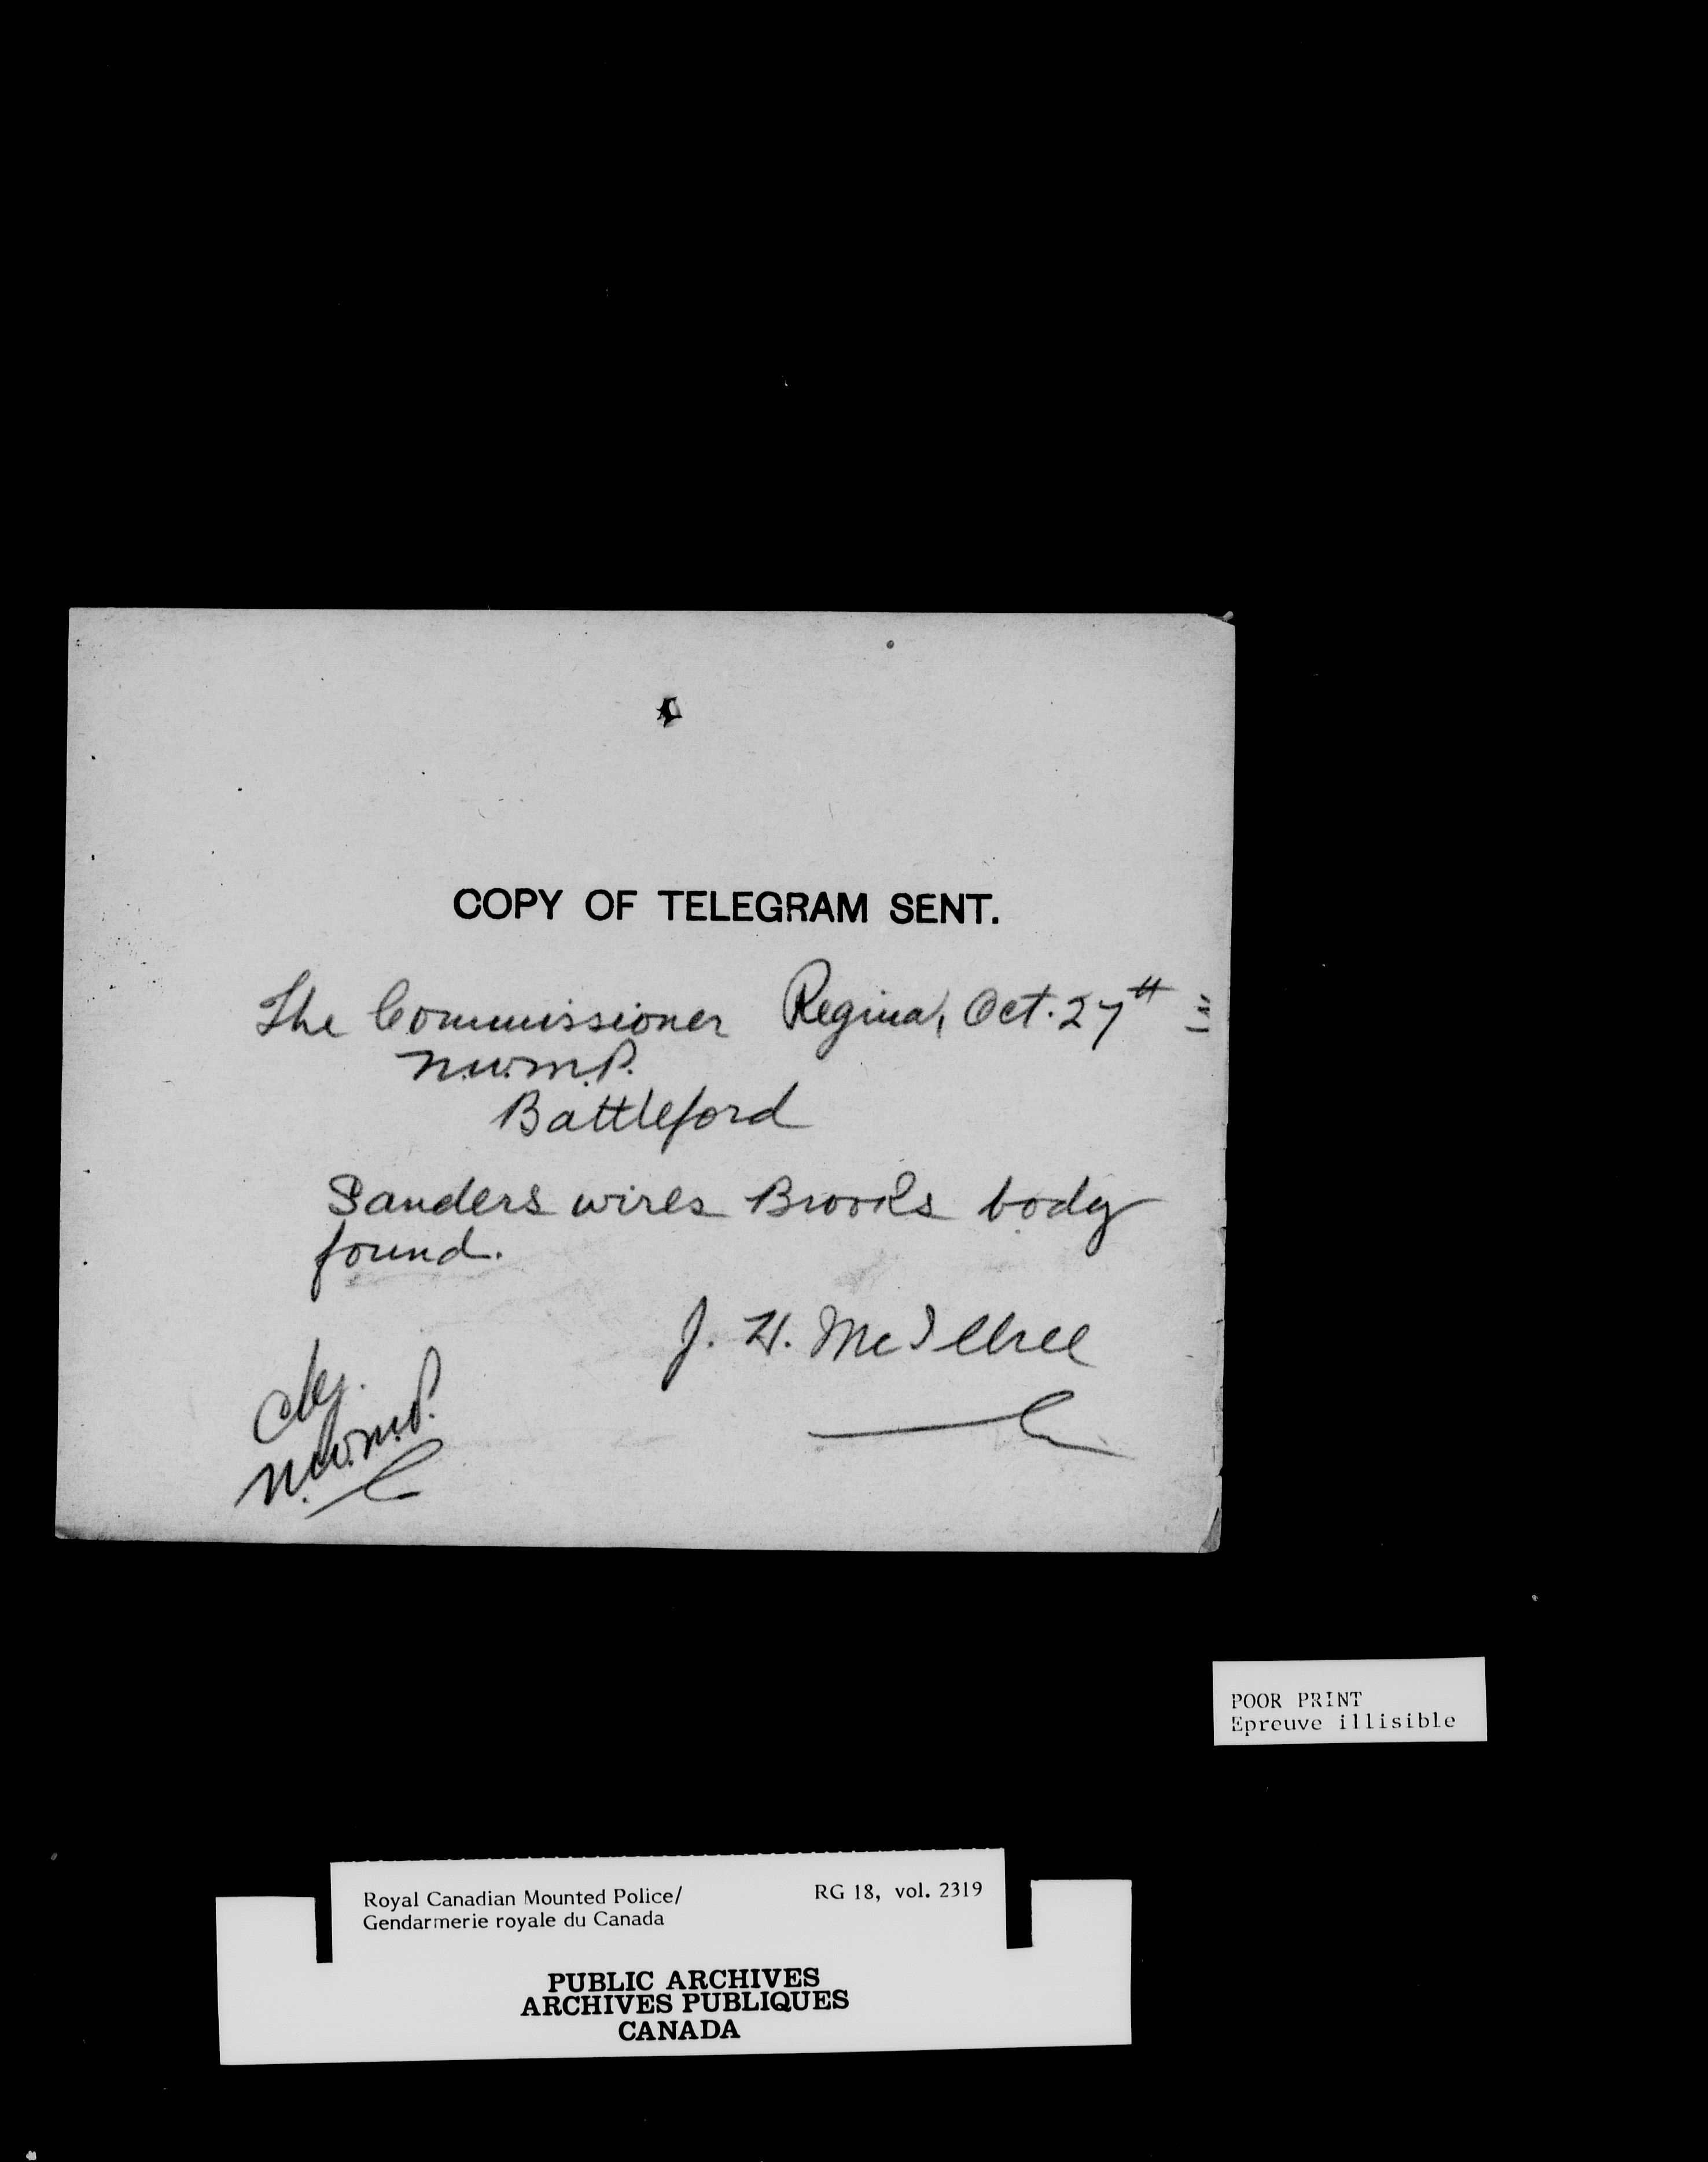 COPY OF TELEGRAM SENT.
The Commissioner Regina, Oct. 27th
N.W.M.P.
Battleford
Sanders wires Brooks body
found.
J. H. McIllree
Chg.
N.W.M.P.
POOR PRINT
Epreuve illisible
Royal Canadian Mounted Police/ RG 18, vol. 2319
Gendarmerie royale du Canada
PUBLIC ARCHIVES
ARCHIVES PUBLIQUES
CANADA